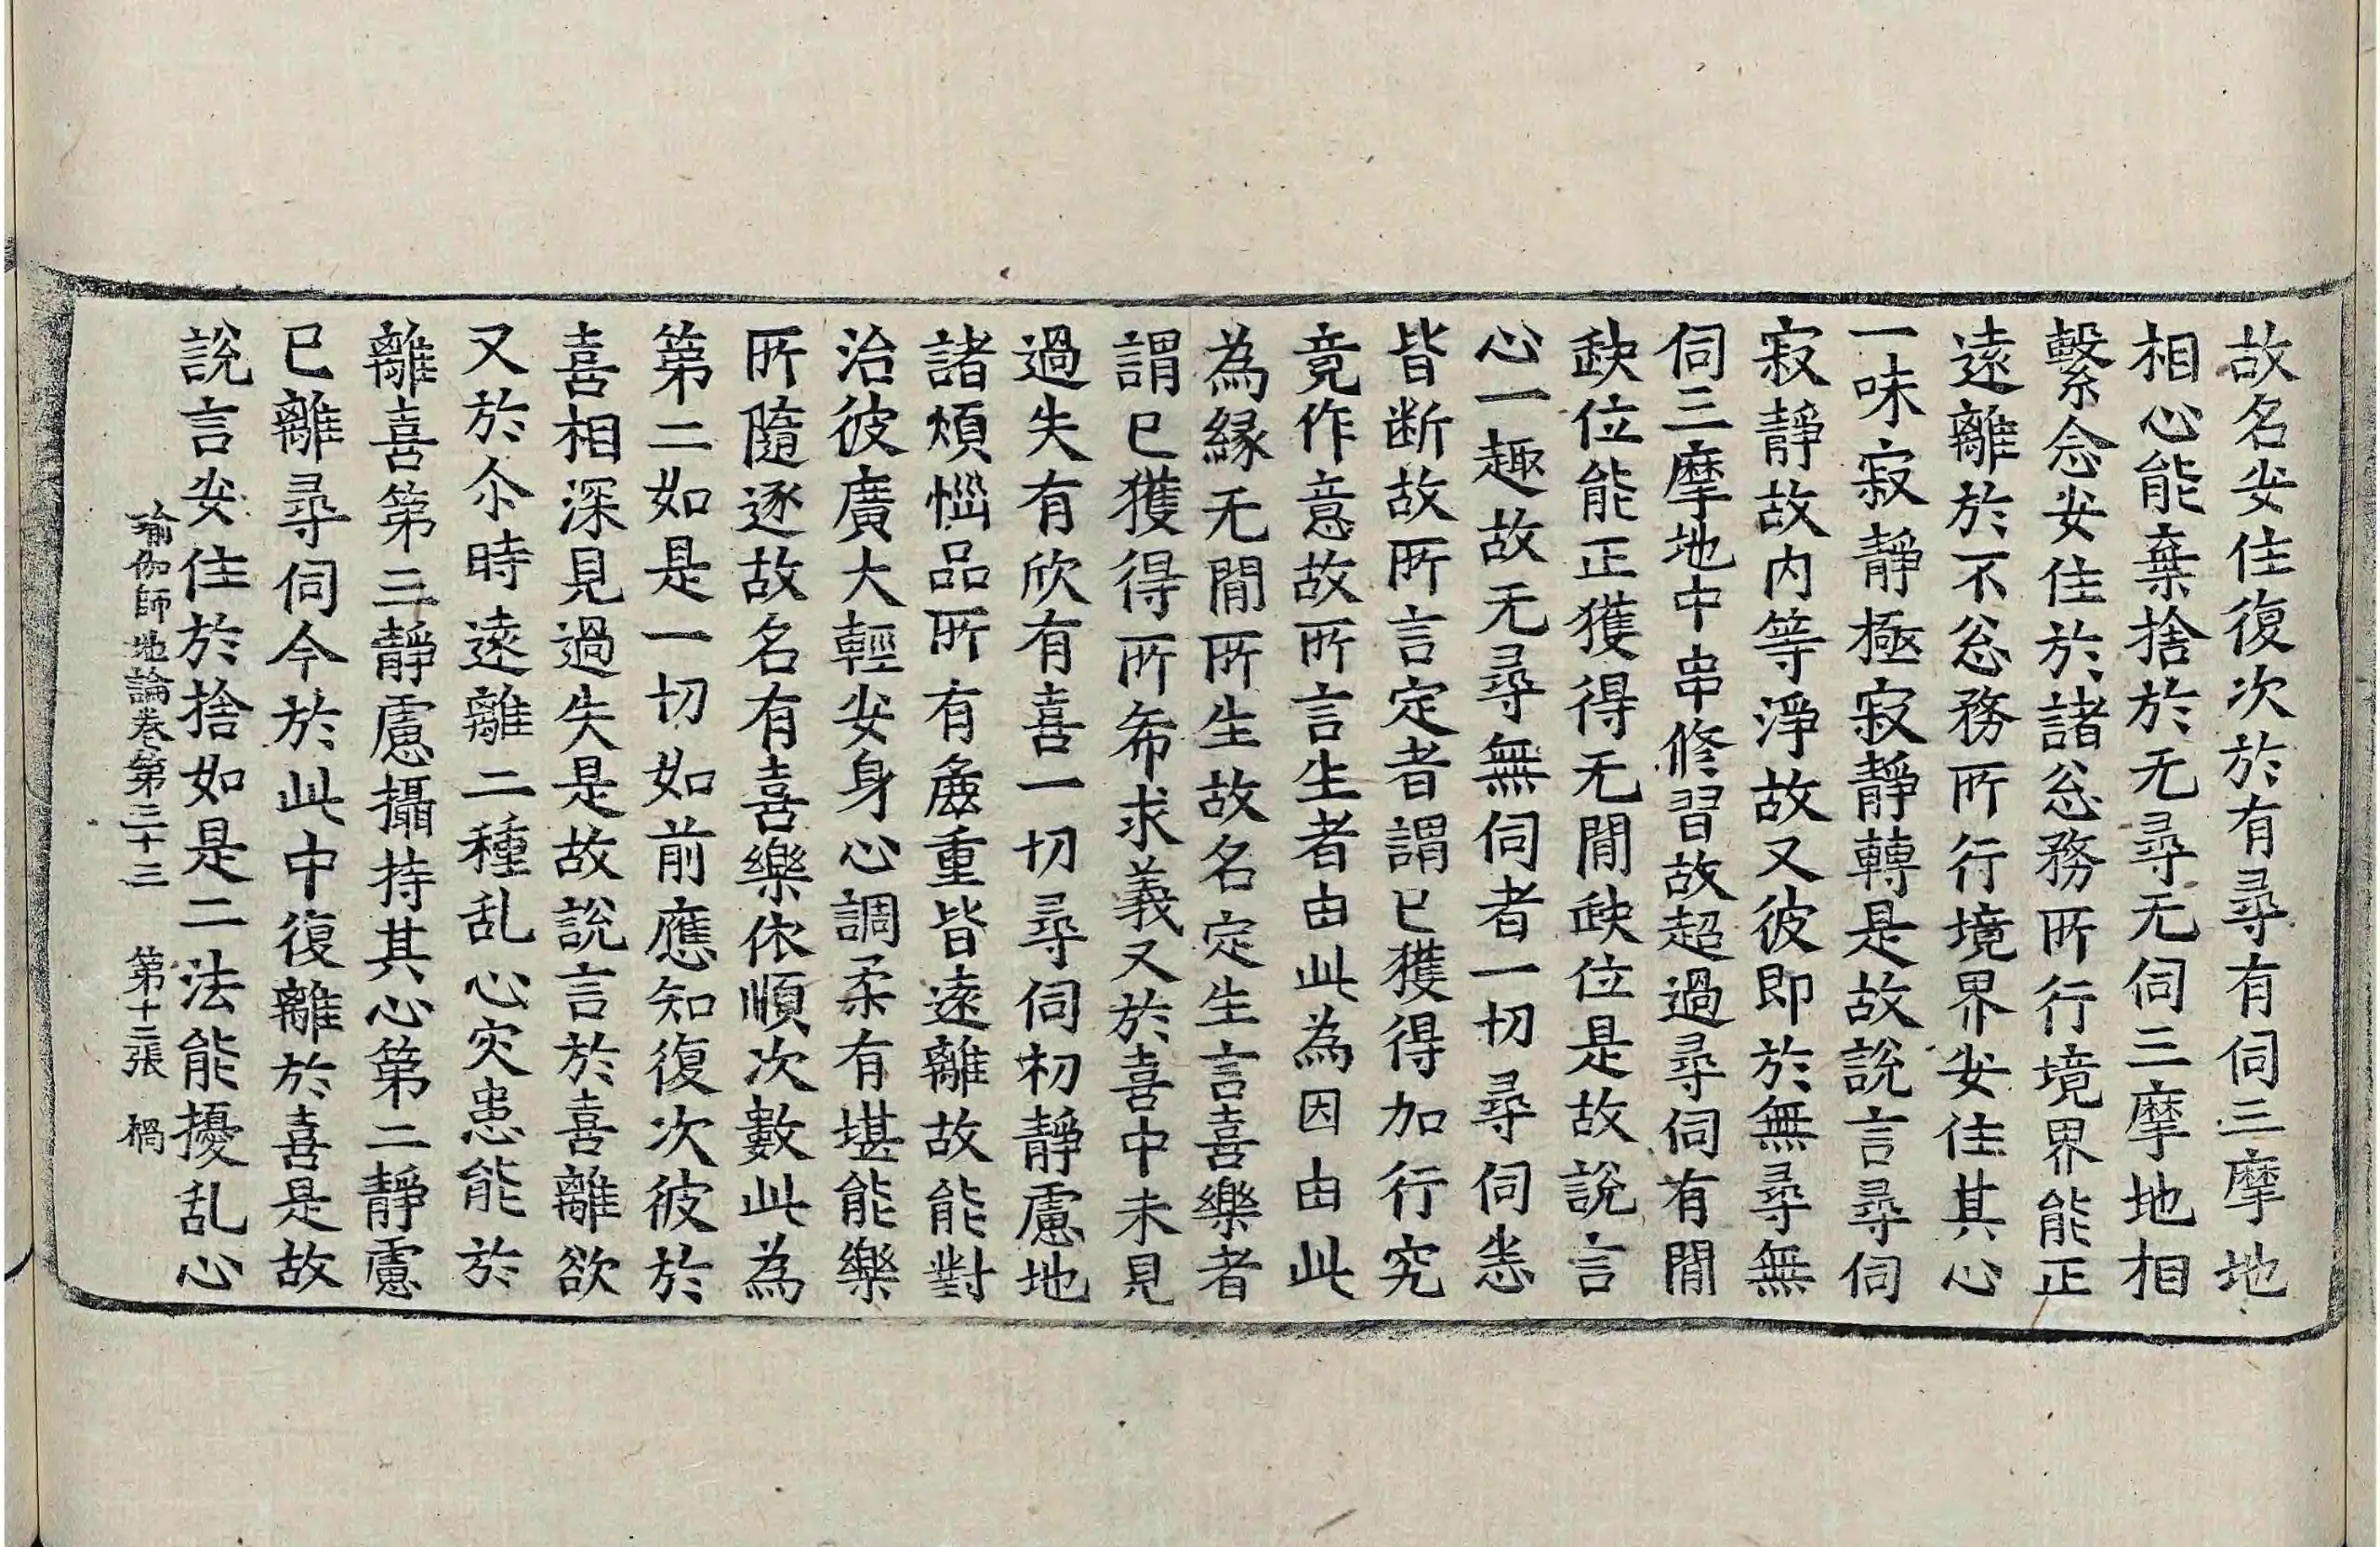 故名安住復次於有尋有伺三摩地
相心能棄捨於无尋无伺三摩地相
繫念安住於諸忩務所行境界能正
遠離於不忩務所行境界安住其心
一味寂靜極寂靜轉是故說言尋伺
寂靜故内等淨故又彼即於無尋無
伺三摩地中串修習故超過尋伺有閒
𡙇位能正獲得无閒𡙇位是故說言
心一趣故无尋無伺者一切尋伺悉
皆断故所言定者謂已獲得加行究
竟作意故所言生者由此為因由此
為縁无閒所生故名定生言喜樂者
謂已獲得所希求義又於喜中未見
過失有欣有喜一切尋伺初靜慮地
諸煩惱品所有麁重皆遠離故能對
治彼廣大輕安身心調柔有堪能樂
所隨逐故名有喜樂依順次數此為
第二如是一切如前應知復次彼於
喜相深見過失是故說言於喜離欲
又於尒時遠離二種乱心灾患能於
離喜第三靜慮攝持其心第二靜慮
已離尋伺今於此中復離於喜是故
說言安住於捨如是二法能擾乱心
瑜伽師地論卷第三十三　第十二張